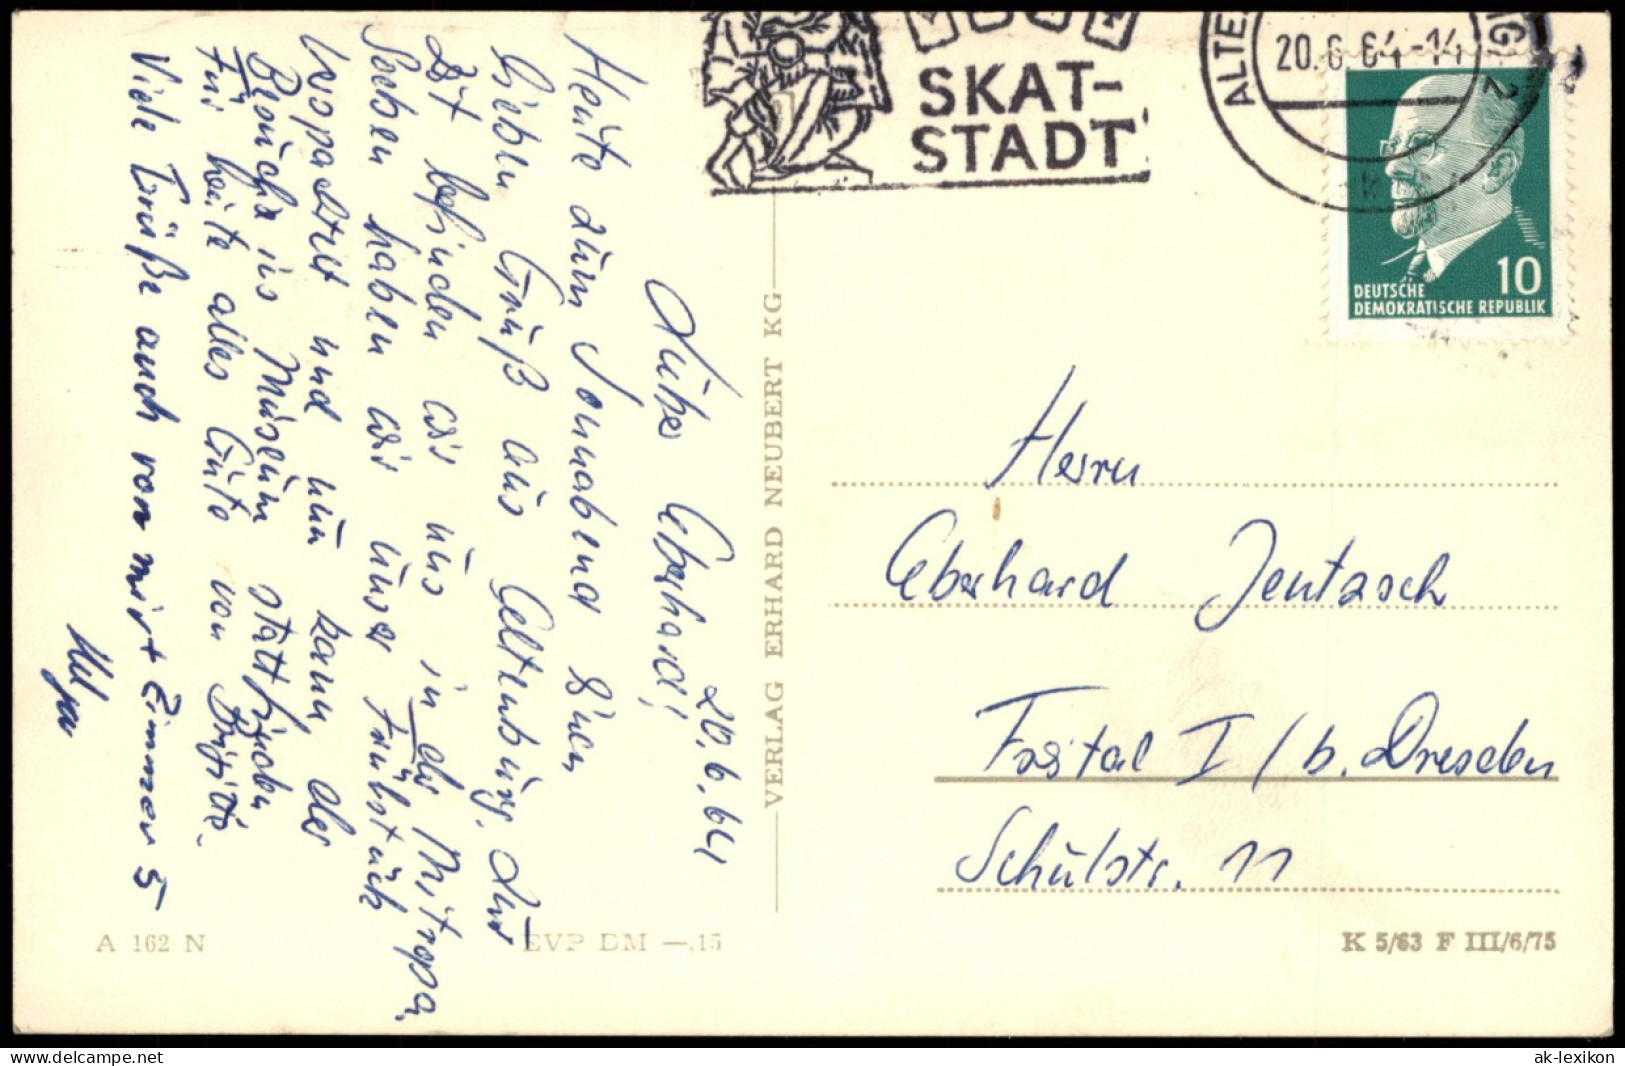 20.6.64
Lieber Eberhard!
Heute zum Sonnabend einen
lieben Gruß aus Altenburg. Zur
Zeit befinden wir uns in der Mitropa.
Soeben haben wir unser Frühstück
verspachtelt und nun kann der
Besuch im Museum stattfinden.
Für heute alles Gute von Brigitte.
Viele Grüße auch von mir + Zimmer 5
VERLAG ERHARD NEUBERT KG
A 162 N
EVP DM —,15
SKAT-
STADT
ALTE
20.6.64-14
2
k
10
DEUTSCHE
DEMOKRATISCHE REPUBLIK
Herrn
Eberhard Jentzsch
Freital I / b. Dresden
Schulstr. 11
K 5/63 F III/6/75
ak-lexikon